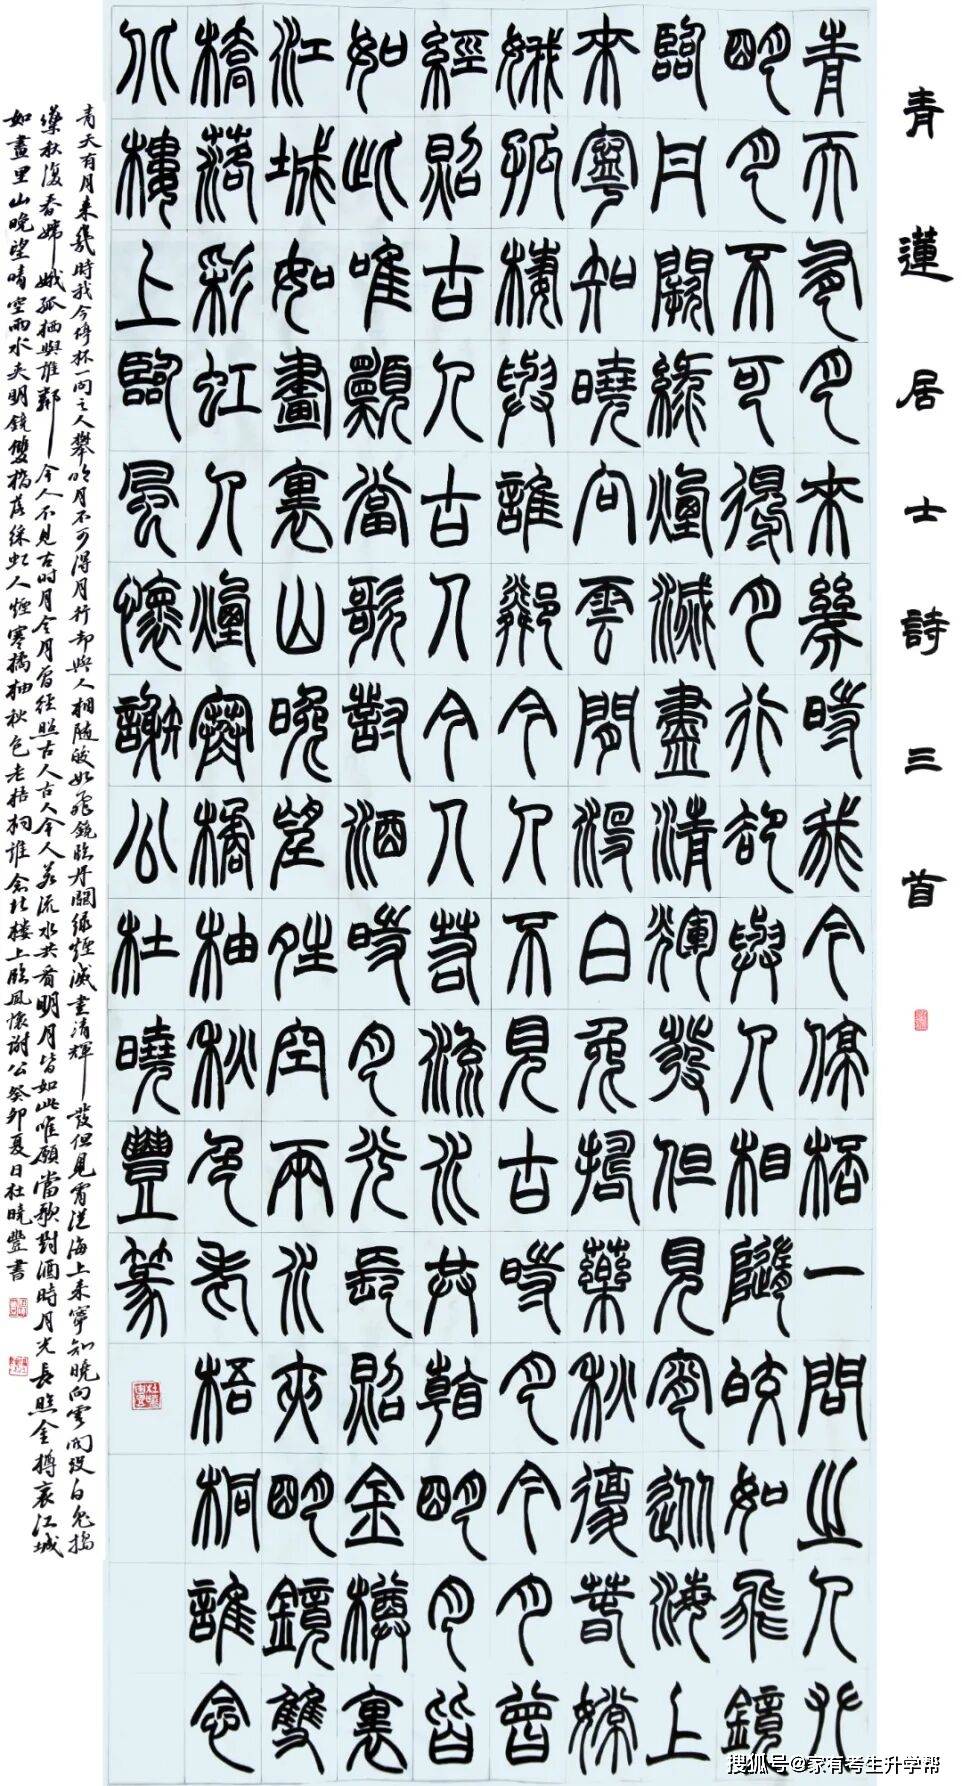 青蓮居士詩三首
青天有月來幾時我今停桮一問之人攀
明月不可得月行卻與人相隨皎如飛鏡
臨丹闕綠煙滅盡清輝發但見宵從海上
來寧知曉向雲間沒白兔搗藥秋復春嫦
娥孤棲與誰鄰今人不見古時月今月曾
經照古人古人今人若流水共看明月皆
如此唯願當歌對酒時月光長照金樽裏
江城如畫裏山晚望晴空兩水夾明鏡雙
橋落彩虹人煙寒橘柚秋色老梧桐誰念
北樓上臨風懷謝公杜曉豐篆
青天有月来幾時我今停杯一问之人攀明月不可得月行却與人相随皎如飛鏡临丹闕绿煙滅盡清輝發但見宵從海上来寧知曉向雲间没白兔搗
藥秋復春嫦娥孤栖與誰鄰今人不見古时月今月曾经照古人古人今人若流水共看明月皆如此唯願當歌對酒時月光長照金樽裏江城
如畫里山晚望晴空兩水夾明鏡雙橋落綵虹人煙寒橘柚秋色老梧桐誰念北楼上临風懷謝公癸卯夏日杜曉豐書
搜狐号@家有考生升学帮